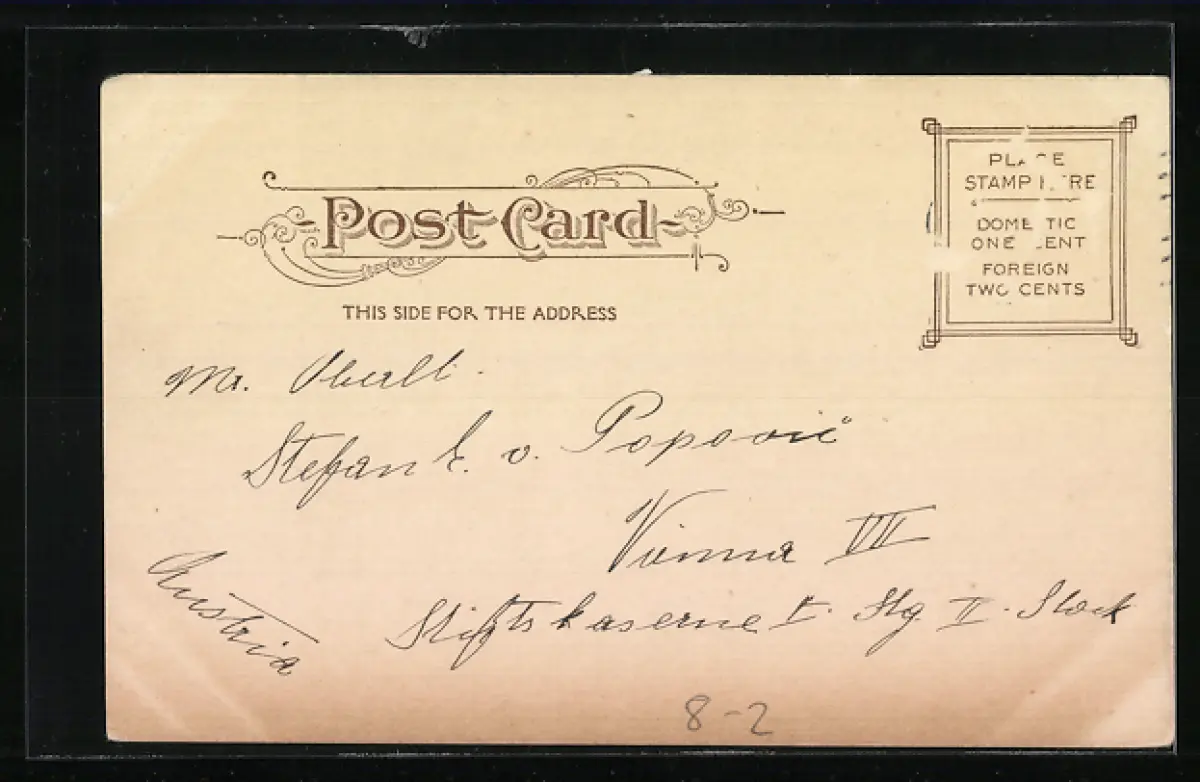 Post Card
THIS SIDE FOR THE ADDRESS
PLACE
STAMP HERE
DOMESTIC
ONE CENT
FOREIGN
TWO CENTS
Mr. Oberlt.
Stefan E. v. Popović
Vienna VII
Stiftskaserne I. Stg II. Stock
Austria
8-2